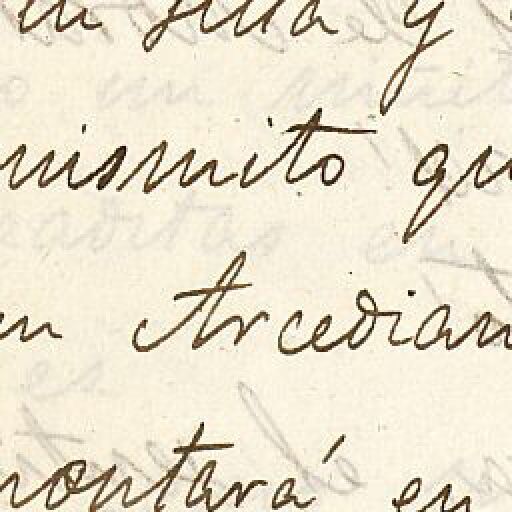 en silla y
mismito qu
en Arcedian
montará en